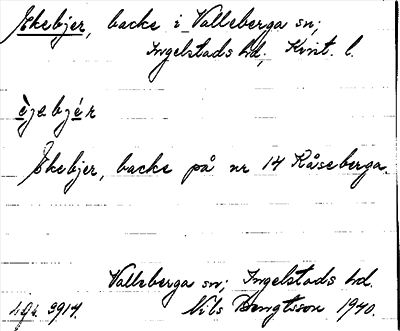 Ekebjer, backe i Valleberga sn;
Ingelstads hd, Krist. l.
èjebjér
Ekebjer, backe på nr 14 Kåseberga.
Valleberga sn; Ingelstads hd.
3914. Nils Bengtsson 1940.